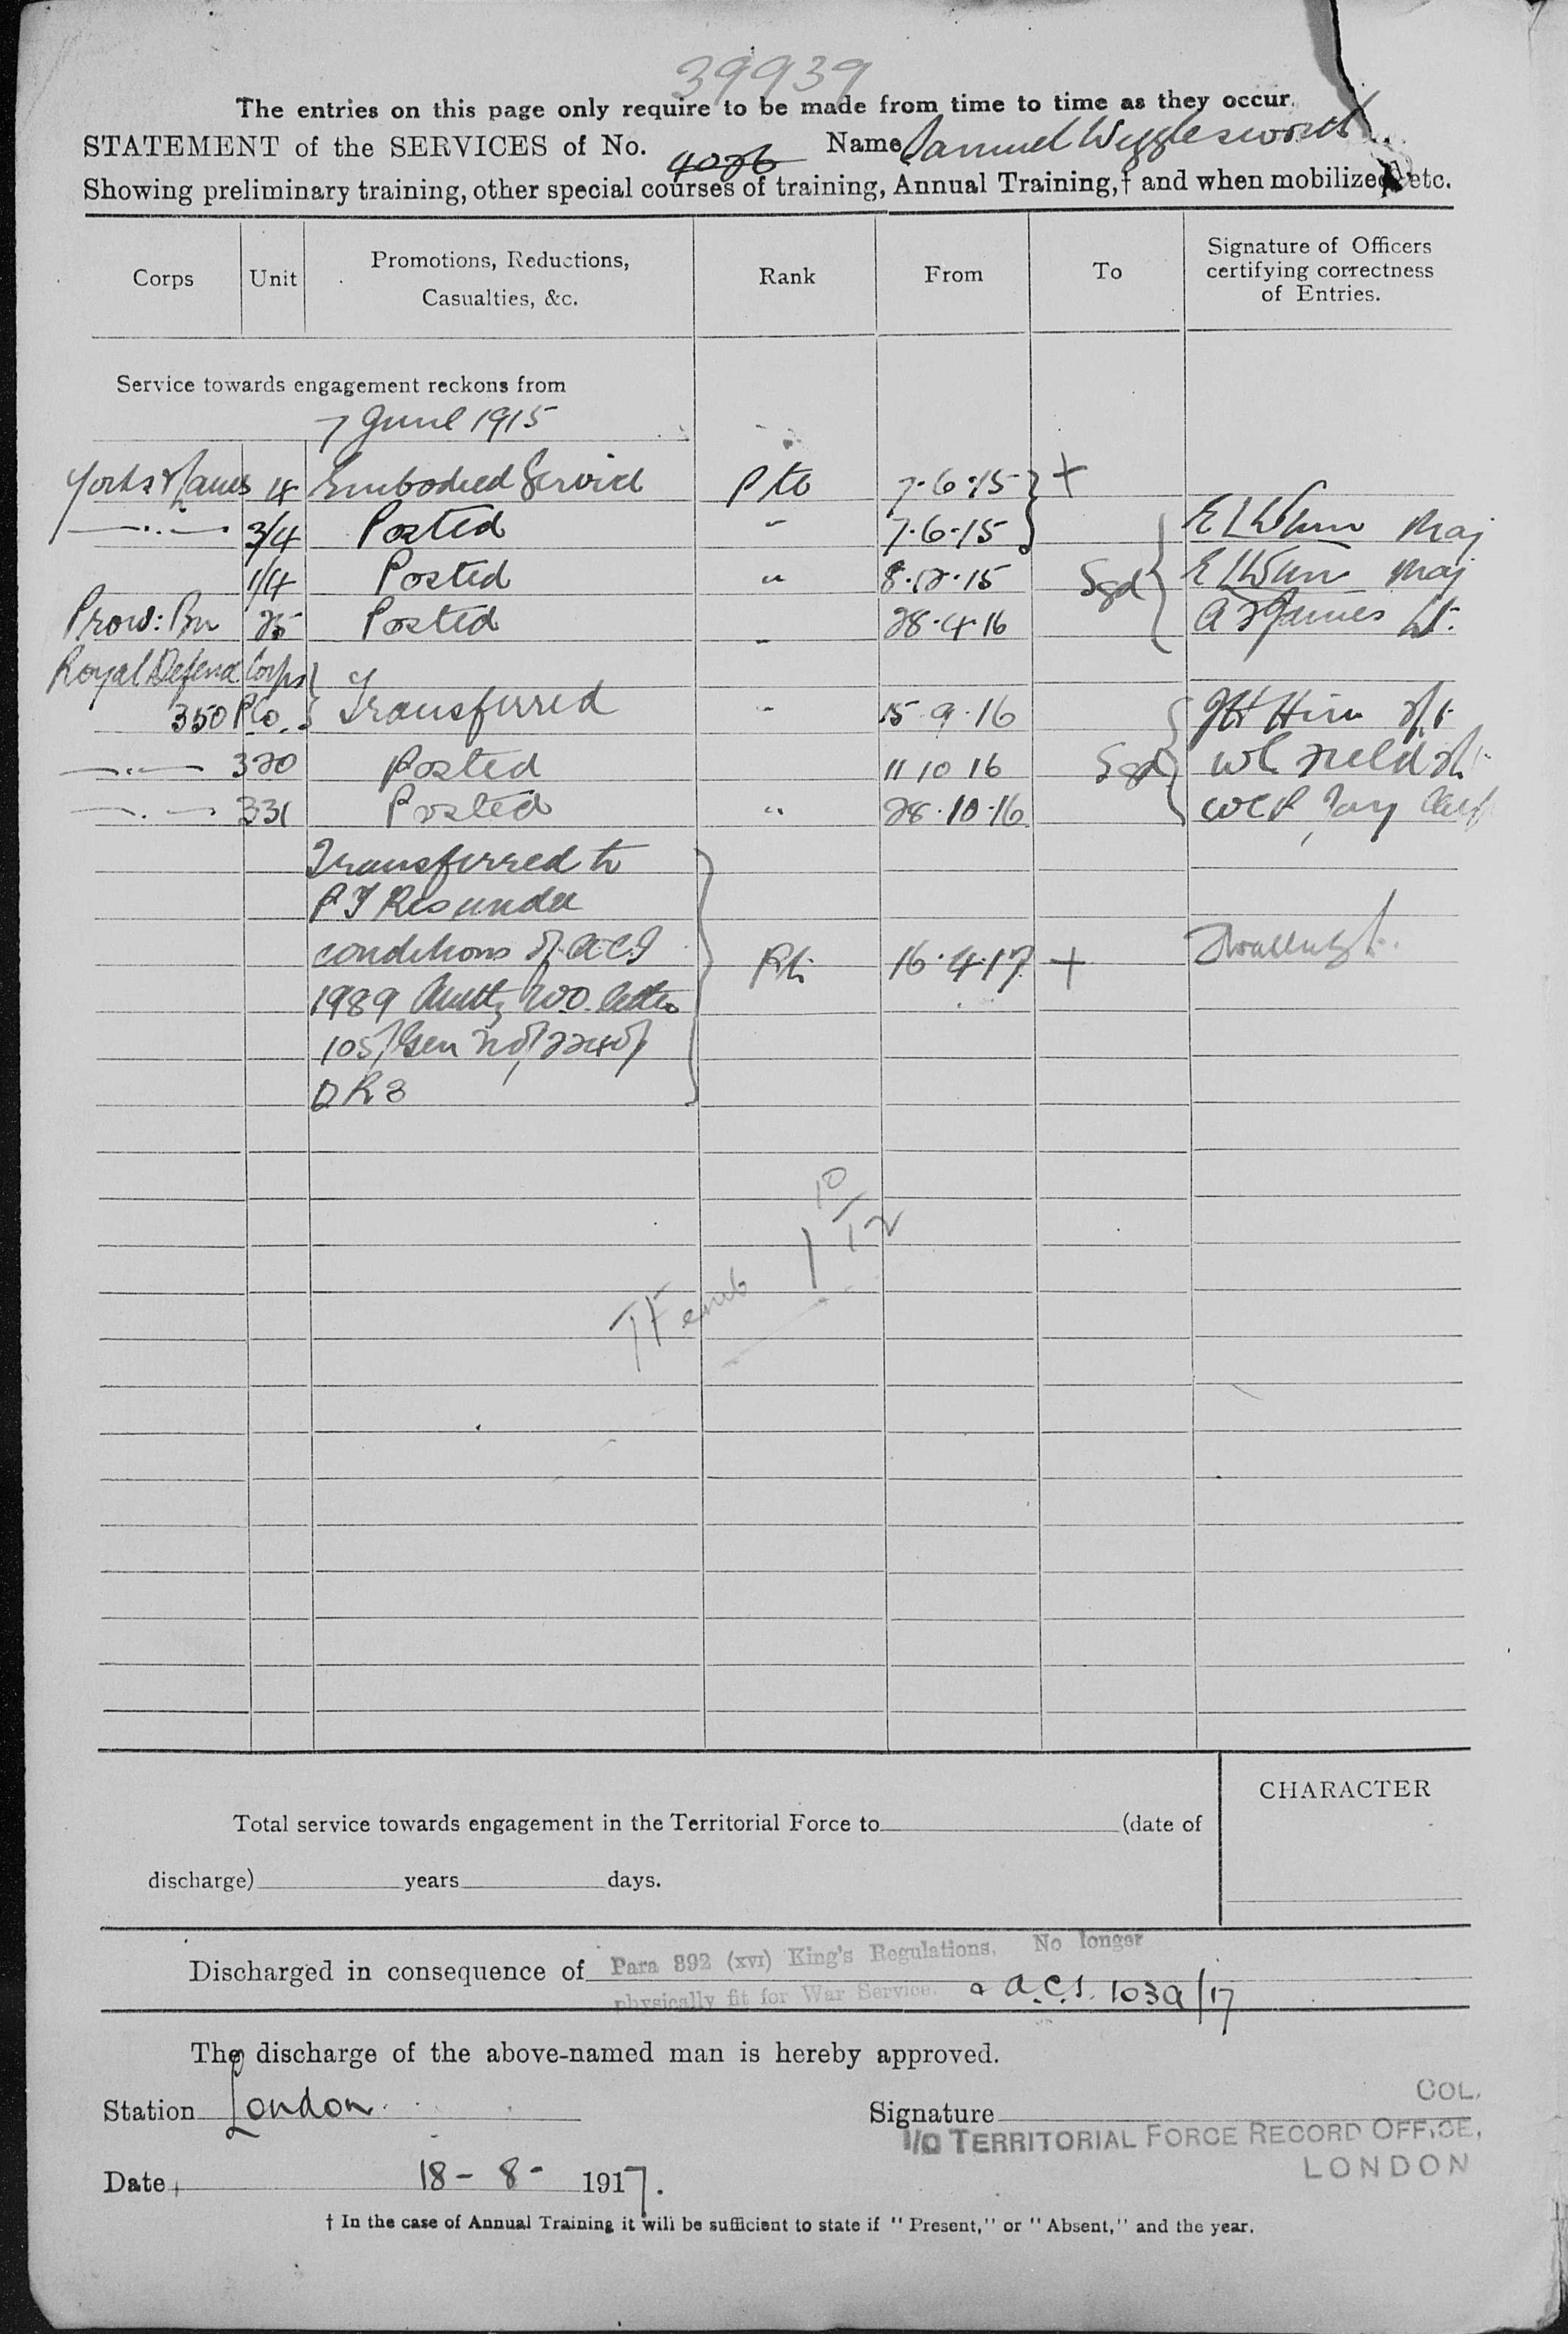 39939
The entries on this page only require to be made from time to time as they occur.
STATEMENT of the SERVICES of No. 4026 Name Samuel Wigglesworth
Showing preliminary training, other special courses of training, Annual Training,† and when mobilized etc.
Corps Unit Promotions, Reductions, Casualties, &c. Rank From To Signature of Officers certifying correctness of Entries.
Service towards engagement reckons from
7 June 1915
Yorks & Lancs 4 Embodied Service Pte 7.6.15 +
—..— 3/4 Posted " 7.6.15 Maj
1/4 Posted " 8.12.15 Sgd Maj
Prov: Bn 25 Posted " 28.4.16 James Lt.
Royal Defence Corps
350 P.Co. Transferred " 15 9 16
—..— 320 Posted 11 10 16 Sgd
—.— 331 Posted " 28.10.16
Transferred to
P T Res under
conditions of ACI Pte 16.4.17 +
1989 Authty W.O. letter
105/Gen No/2240/
D R 3
10
1 12
TF emb
Total service towards engagement in the Territorial Force to (date of
discharge) years days.
CHARACTER
Discharged in consequence of Para 392 (xvi) King's Regulations. No longer
physically fit for War Service. & A.C.I. 1039/17
The discharge of the above-named man is hereby approved.
Station London
Signature COL.
I/C TERRITORIAL FORCE RECORD OFFICE,
LONDON
Date 18 - 8 - 1917.
† In the case of Annual Training it will be sufficient to state if "Present," or "Absent," and the year.